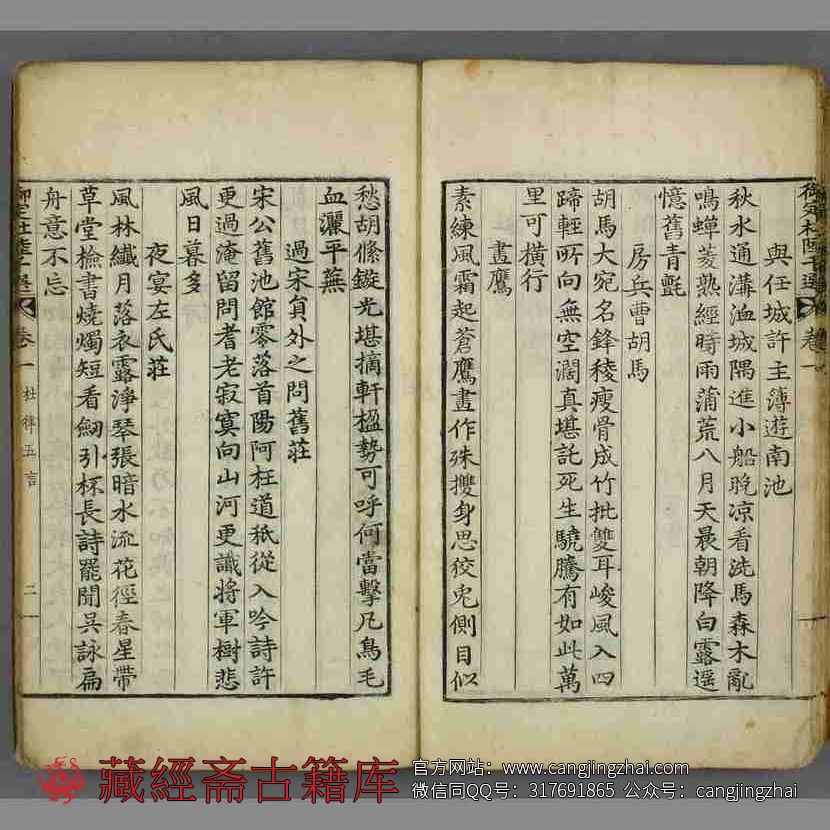 與任城許主簿遊南池
秋水通溝洫城隅進小船晚凉看洗馬森木亂
鳴蟬菱熟經時雨蒲荒八月天晨朝降白露遥
憶舊青氊
房兵曹胡馬
胡馬大宛名鋒稜瘦骨成竹批雙耳峻風入四
蹄輕所向無空濶真堪託死生驍騰有如此萬
里可橫行
畫鷹
素練風霜起蒼鷹畫作殊㩳身思狡兎側目似
愁胡絛鏇光堪摘軒楹勢可呼何當擊凡鳥毛
血灑平蕪
過宋貟外之問舊莊
宋公舊池館零落首陽阿枉道秖從入吟詩許
更過淹留問耆老寂寞向山河更識將軍樹悲
風日暮多
夜宴左氏莊
風林纖月落衣露淨琴張暗水流花徑春星帶
草堂檢書燒燭短看劒引杯長詩罷聞吳詠扁
舟意不忘
御定杜陸千選 卷一 杜律五言 二
藏經斋古籍库
官方网站：www.cangjingzhai.com
微信同QQ号：317691865 公众号：cangjingzhai